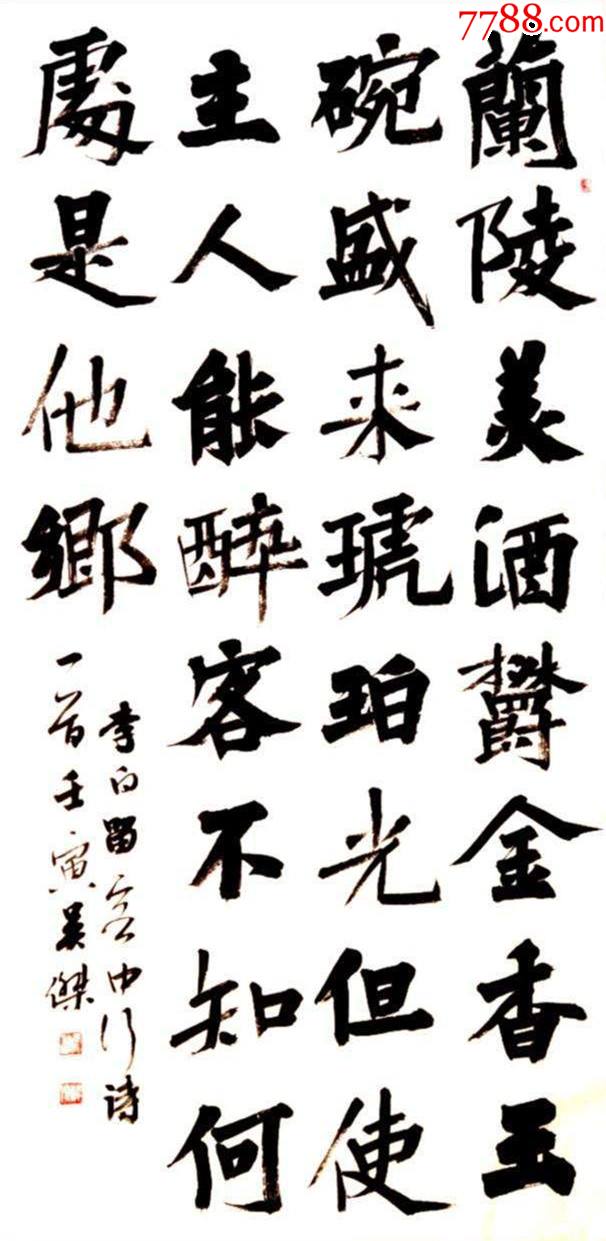 7788.com
蘭陵美酒欝金香玉
碗盛来琥珀光但使
主人能醉客不知何
處是他鄉
李白留客中行詩
一首壬寅吴傑